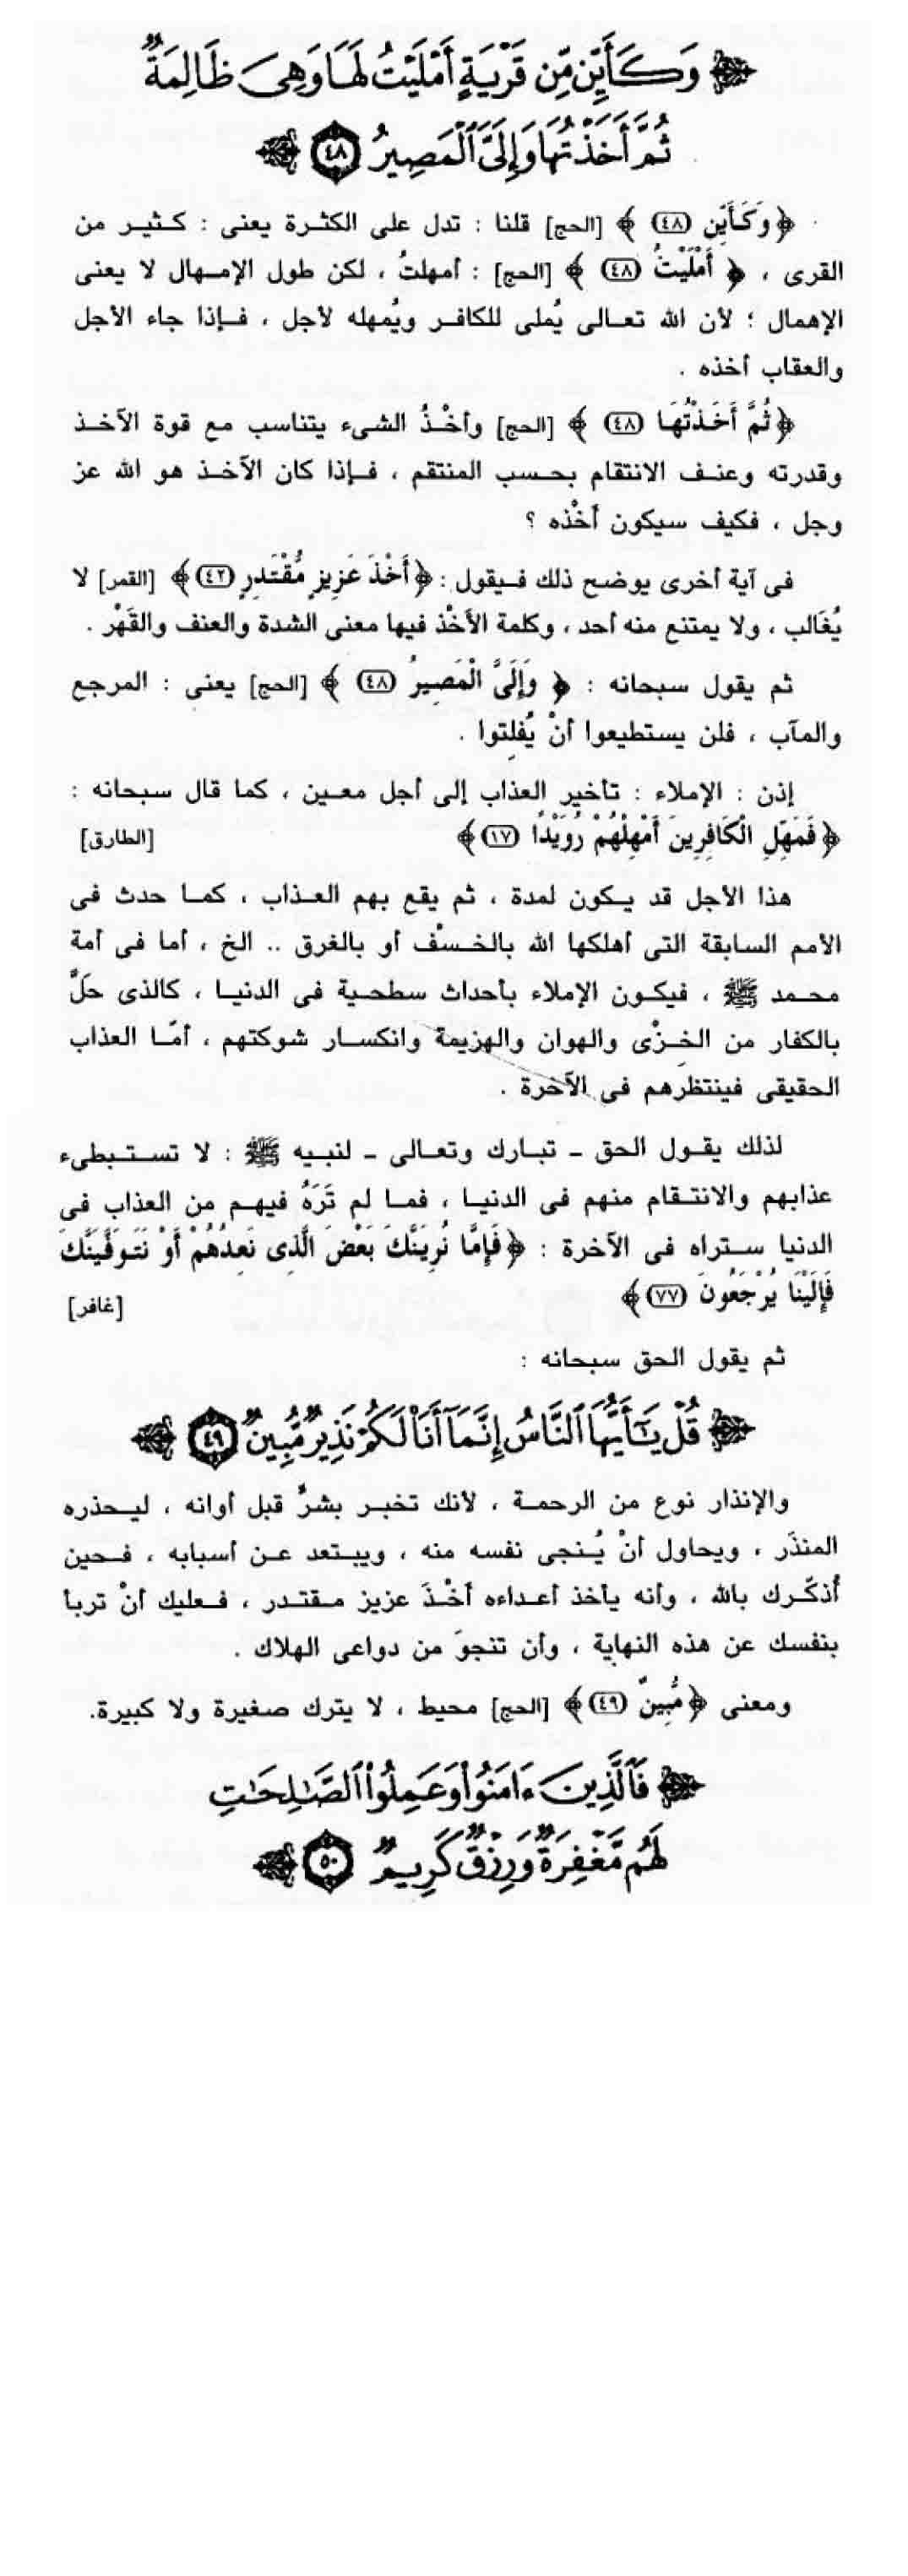 ﴿ وَكَأَيِّن مِّن قَرْيَةٍ أَمْلَيْتُ لَهَا وَهِيَ ظَالِمَةٌ
ثُمَّ أَخَذْتُهَا وَإِلَيَّ الْمَصِيرُ ٤٨ ﴾
﴿ وَكَأَيِّن ٤٨ ﴾ [الحج] قلنا : تدل على الكثرة يعنى : كثير من
القرى ، ﴿ أَمْلَيْتُ ٤٨ ﴾ [الحج] : أمهلتُ ، لكن طول الإمهال لا يعنى
الإهمال ؛ لأن الله تعالى يُملى للكافر ويُمهله لأجل ، فإذا جاء الأجل
والعقاب أخذه .
﴿ ثُمَّ أَخَذْتُهَا ٤٨ ﴾ [الحج] وأخْذُ الشىء يتناسب مع قوة الآخذ
وقدرته وعنف الانتقام بحسب المنتقم ، فإذا كان الآخذ هو الله عز
وجل ، فكيف سيكون أخْذه ؟
فى آية أخرى يوضح ذلك فيقول : ﴿ أَخْذَ عَزِيزٍ مُّقْتَدِرٍ ٤٢ ﴾ [القمر] لا
يُغَالب ، ولا يمتنع منه أحد ، وكلمة الأخْذ فيها معنى الشدة والعنف والقَهْر .
ثم يقول سبحانه : ﴿ وَإِلَيَّ الْمَصِيرُ ٤٨ ﴾ [الحج] يعنى : المرجع
والمآب ، فلن يستطيعوا أنْ يُفلِتوا .
إذن : الإملاء : تأخير العذاب إلى أجل معين ، كما قال سبحانه :
﴿ فَمَهِّلِ الْكَافِرِينَ أَمْهِلْهُمْ رُوَيْدًا ١٧ ﴾ [الطارق]
هذا الأجل قد يكون لمدة ، ثم يقع بهم العذاب ، كما حدث فى
الأمم السابقة التى أهلكها الله بالخسْف أو بالغرق .. الخ ، أما فى أمة
محمد ﷺ ، فيكون الإملاء بأحداث سطحية فى الدنيا ، كالذى حَلَّ
بالكفار من الخِزْى والهوان والهزيمة وانكسار شوكتهم ، أمّا العذاب
الحقيقى فينتظرهم فى الآخرة .
لذلك يقول الحق - تبارك وتعالى - لنبيه ﷺ : لا تستبطىء
عذابهم والانتقام منهم فى الدنيا ، فما لم تَرَهُ فيهم من العذاب فى
الدنيا ستراه فى الآخرة : ﴿ فَإِمَّا نُرِيَنَّكَ بَعْضَ الَّذِى نَعِدُهُمْ أَوْ نَتَوَفَّيَنَّكَ
فَإِلَيْنَا يُرْجَعُونَ ٧٧ ﴾ [غافر]
ثم يقول الحق سبحانه :
﴿ قُلْ يَـٰٓأَيُّهَا النَّاسُ إِنَّمَآ أَنَا۠ لَكُمْ نَذِيرٌ مُّبِينٌ ٤٩ ﴾
والإنذار نوع من الرحمة ، لأنك تخبر بشرٍّ قبل أوانه ، ليحذره
المنذَر ، ويحاول أنْ يُنجى نفسه منه ، ويبتعد عن أسبابه ، فحين
أُذكّرك بالله ، وأنه يأخذ أعداءه أخْذَ عزيز مقتدر ، فعليك أنْ تربأ
بنفسك عن هذه النهاية ، وأن تنجوَ من دواعى الهلاك .
ومعنى ﴿ مُّبِينٌ ٤٩ ﴾ [الحج] محيط ، لا يترك صغيرة ولا كبيرة.
﴿ فَالَّذِينَ ءَامَنُوا وَعَمِلُوا الصَّـٰلِحَـٰتِ
لَهُم مَّغْفِرَةٌ وَرِزْقٌ كَرِيمٌ ٥٠ ﴾